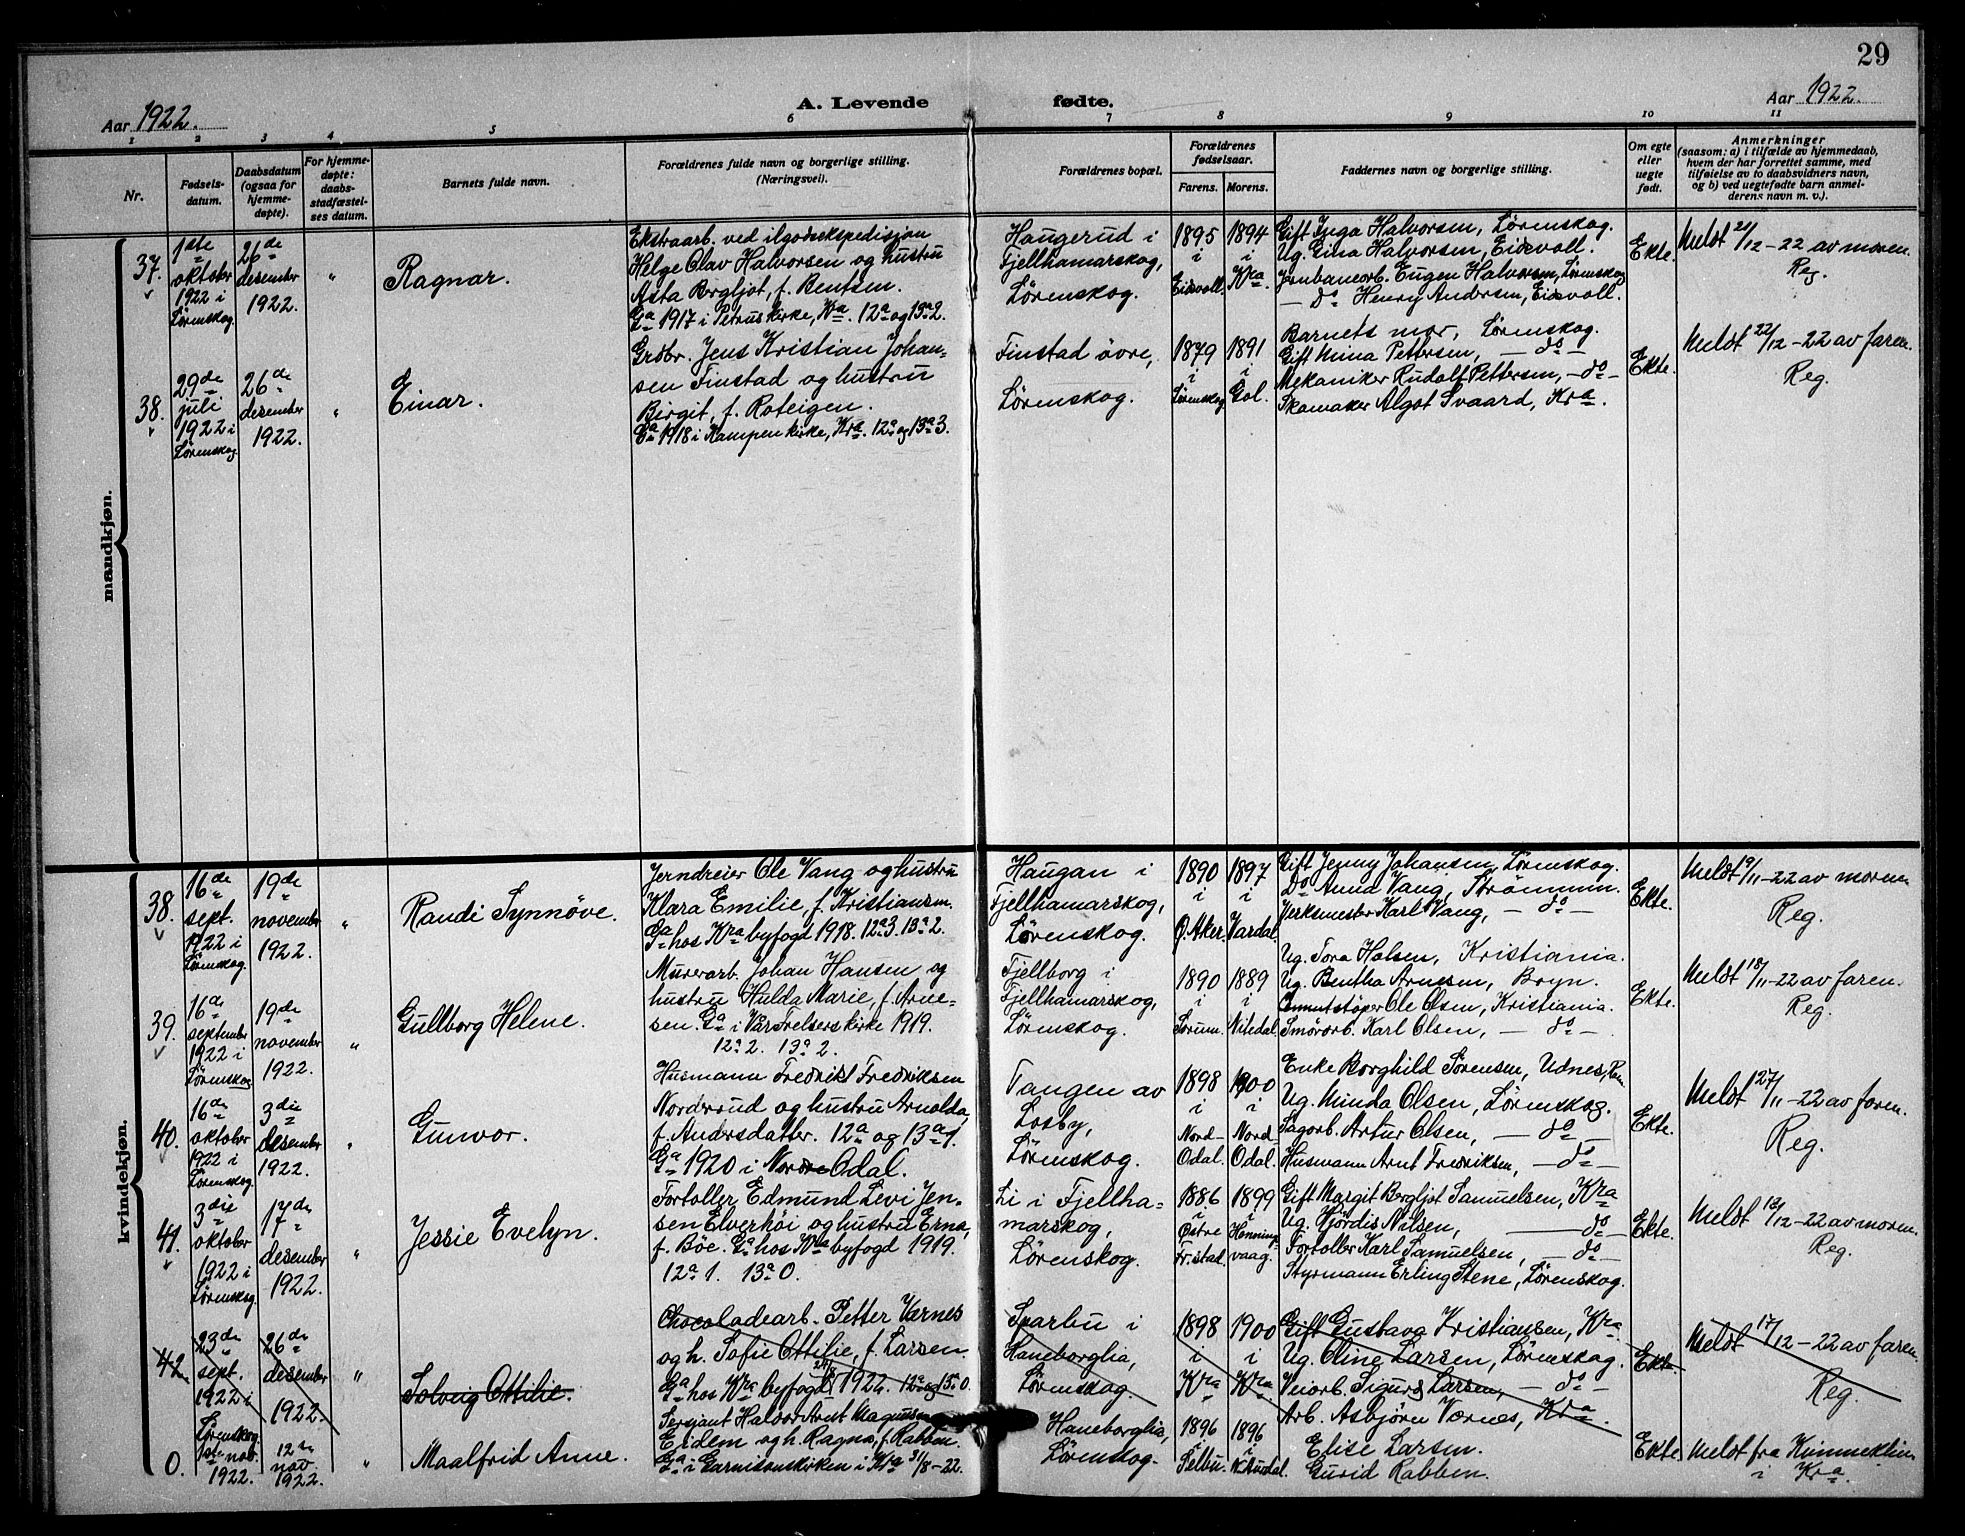 29
Aar 1922.
A. Levende fødte.
Aar 1922.
1 2 3 4 5 6 7 8 9 10 11
Nr.
Fødsels-
datum.
Daabsdatum
(ogsaa for
hjemme-
døpte).
For hjemme-
døpte:
daabs-
stadfæstel-
ses datum.
Barnets fulde navn.
Forældrenes fulde navn og borgerlige stilling.
(Næringsvei).
Forældrenes bopæl.
Forældrenes
fødselsaar.
Farens. Morens.
Faddernes navn og borgerlige stilling.
Om egte
eller
uegte
født.
Anmerkninger
(saasom: a) i tilfælde av hjemmedaab,
hvem der har forrettet samme, med
tilføielse av to daabsvidners navn,
og b) ved uegtefødte barn anmel-
derens navn m. v.).
mandkjøn.
37.
1ste
oktober
1922 i
Lørenskog.
26de
desember
1922.
"
Ragnar.
Ekstraarb. ved ilgodsekspedisjon
Helge Olav Halvorsen og hustru
Asta Bergljot, f. Bentsen.
Ga 1917 i Petruskirke, Kra. 12a og 13a 2.
Haugerud i
Fjellhamarskog,
Lørenskog.
1895
i
Eidsvoll.
1894
i
Kra.
Gift Inga Halvorsen, Lørenskog.
Ug. Gina Halvorsen, Eidsvoll.
Jernbanearb. Eugen Halvorsen, Lørenskog
— do Henry Andersen, Eidsvoll.
Ekte.
Meldt 21/12 – 22 av moren.
Reg.
38.
29de
juli
1922 i
Lørenskog
26de
desember
1922.
"
Einar.
Grdbr. Jens Kristian Johan-
sen Finstad og hustru
Birgit, f. Roteigen.
Ga 1918 i Kampen kirke, Kra. 12a og 13a 3.
Finstad övre,
Lørenskog.
1879
i
Lørenskog
1891
i
Gol.
Barnets mor, Lørenskog.
Gift Mina Pettersen, — do —
Mekaniker Rudolf Pettersen, — do —
Skomaker Algot Svaard, Kra.
Ekte.
Meldt 22/12 – 22 av faren.
Reg.
kvindekjøn.
38.
16de
sept.
1922 i
Lørenskog.
19de
november
1922.
"
Randi Synnöve.
Jerndreier Ole Vang og hustru
Klara Emilie, f. Kristiansen.
Ga hos Kra byfogd 1918. 12a 3. 13a 2.
Haugan i
Fjellhamarskog,
Lørenskog.
1890
i
Ø. Aker.
1897
i
Vardal.
Gift Jenny Johansen, Lørenskog.
Do Anna Vang, Strömmen.
Verksmester Karl Vang, — do —
Ekte.
Meldt 9/11 – 22 av moren.
Reg.
39.
16de
september
1922 i
Lørenskog
19de
november
1922.
"
Gullborg Helene.
Murerarb. Johan Hansen og
hustru Hulda Marie, f. Arne-
sen. Ga i Vår Frelsers kirke 1919.
12a 2. 13a 2.
Fjellborg i
Fjellhamarskog,
Lørenskog.
1890
i
Sørum.
1889
i
Nitedal.
Ug. Tora Halsen, Kristiania.
Ug. Bentha Arnesen, Bryn.
Cementstøper Ole Olsen, Kristiania.
Smörarb. Karl Olsen, — do —
Ekte.
Meldt 18/11 – 22 av faren.
Reg.
40.
16de
oktober
1922 i
Lørenskog
3die
desember
1922.
"
Gunvor.
Husmann Fredrikt Fredriksen
Norderud og hustru Arnolda,
f. Andersdatter. 12a og 13a 1.
Ga 1920 i Nordre Odal.
Tangen av
Losby,
Lørenskog.
1898
i
Nord-
Odal.
1900
i
Nord-
Odal.
Enke Borghild Sørensen, Udnes,
Ug. Minda Olsen, Lørenskog.
Sagarb. Artur Olsen, — do —
Husmann Arnt Fredriksen, — do —
Ekte.
Meldt 27/11 – 22 av faren.
Reg.
41.
3die
oktober
1922 i
Lørenskog.
17de
desember
1922.
"
Jessie Evelyn.
Fortoller Edmund Levi Jen-
sen Elverhöi og hustru Erna,
f. Böe. Ga hos Kra byfogd 1919.
12a 1. 13a 0.
Li i Fjellha-
marskog,
Lørenskog.
1886
i
Østre
Fr.stad.
1899
i
Honning-
vaag.
Gift Margit Bergljot Samuelsen, Kra
Ug. Hjördis Nilsen, — do —
Fortoller Karl Samuelsen, — do —
Styrmann Erling Stene, Lørenskog.
Ekte.
Meldt 12/12 – 22 av moren.
Reg.
42.
23de
sept.
1922 i
Lørenskog
26de
desember
1922.
"
Solveig Ottilie.
Chocoladearb. Petter Værnes
og h. Sofie Ottilie, f. Larsen.
Ga hos Kra byfogd 1922. 12a og 13a 0.
Sparbu i
Haneborglia,
Lørenskog.
1898
i
Kra
1900
i
Kra
Gift Gustava Kristiansen, Kra.
Ug. Oline Larsen, Lørenskog.
Veiarb. Sigurd Larsen, — do —
Arb. Asbjörn Værnes, Kra.
Ekte
Meldt 17/12 – 22 av faren.
Reg.
0.
nov.
1922.
12te
nov.
1922.
"
Maalfrid Anne.
Sersjant Halvor Arnt Magnussen
Eidem og h. Ragna, f. Rabben.
Ga i Garnisonskirken i Kra 31/8 – 22.
Haneborglia,
Lørenskog.
1896
i
Selbu.
1896
i
Elise Larsen.
Gurid Rabben.
Ekte
Meldt fra Kvinneklin.
i Kra.